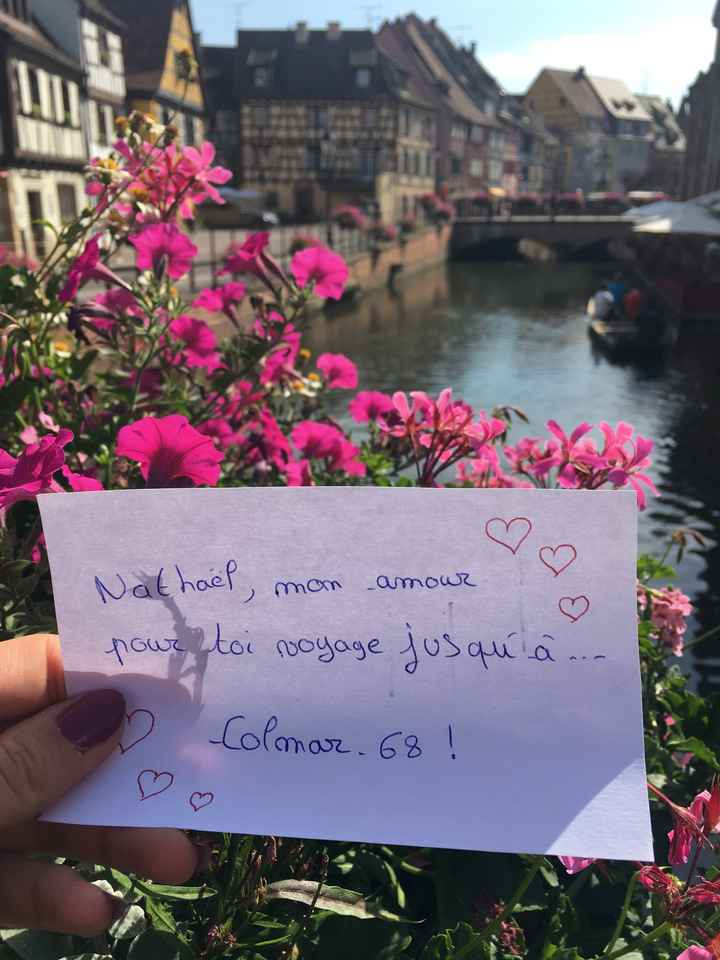 Nathaël, mon amour
pour toi voyage jusqu'à...
Colmar. 68 !